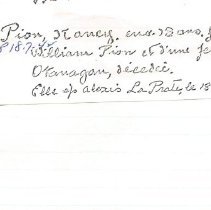 Pion, Nancy. env. 12 ans. f
P 18.
William Pion et d'une fe
Okanagan, décédée.
Elle ép Alexis La Prate, le 18